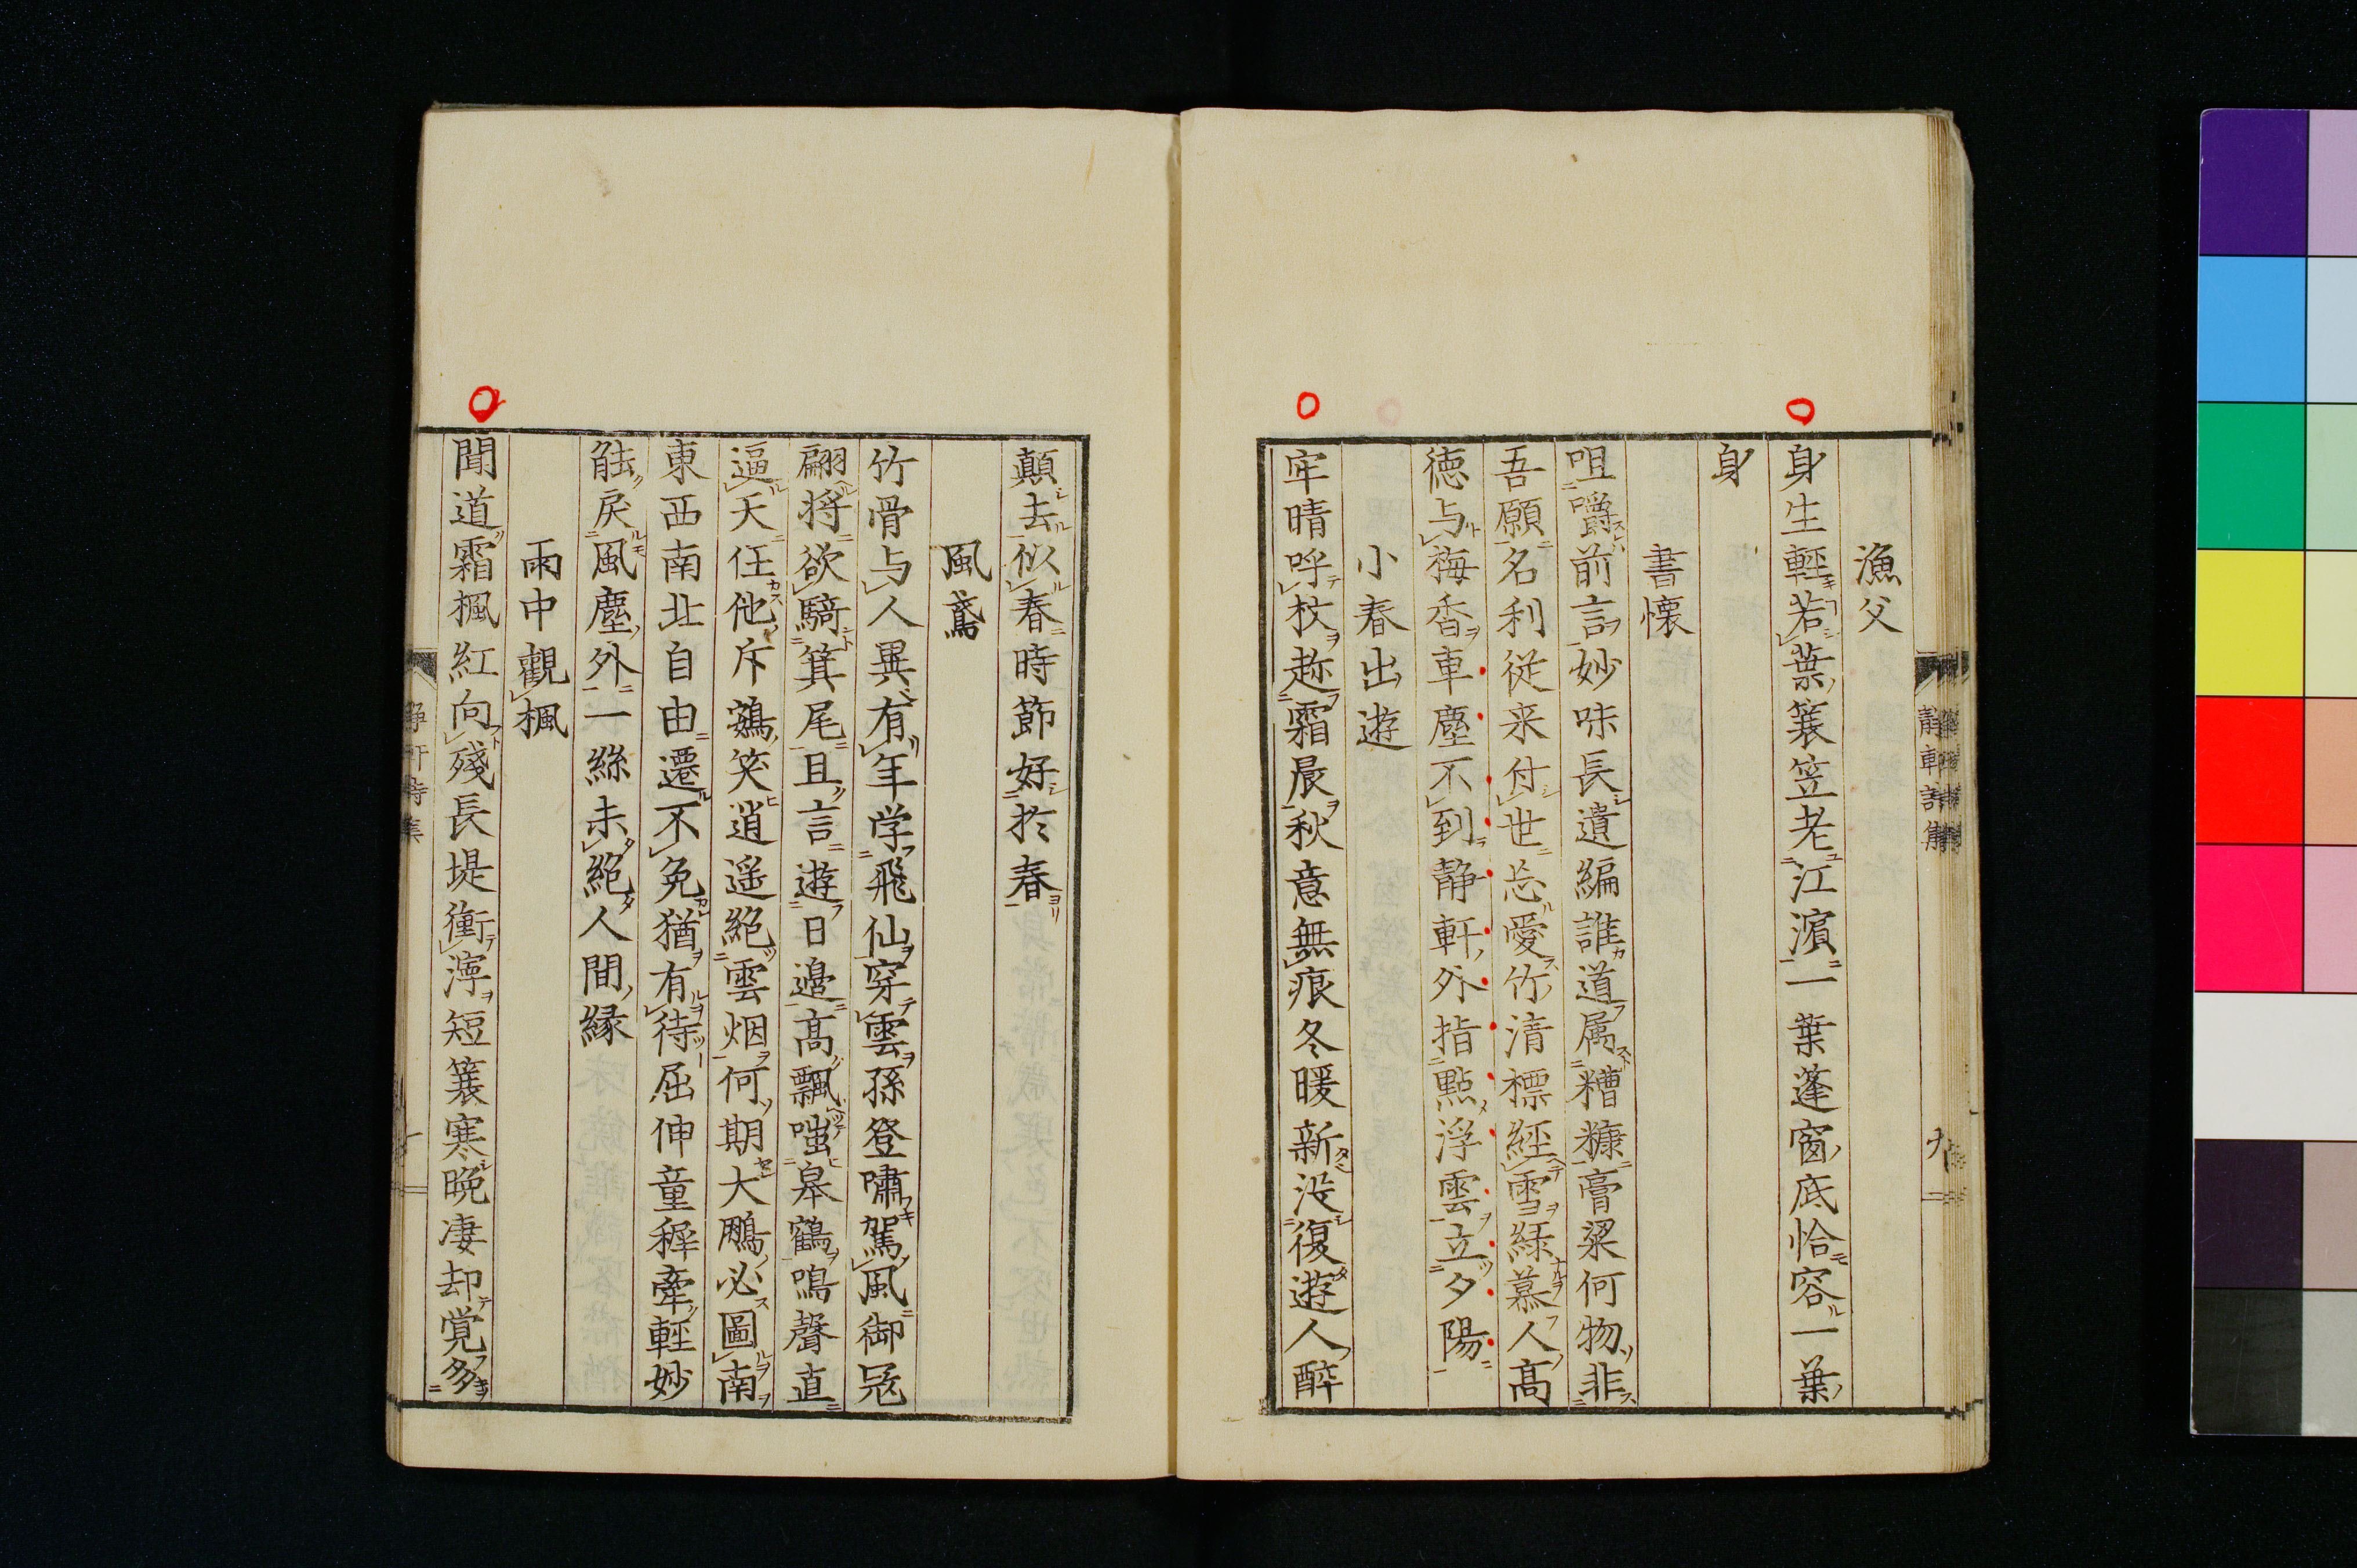 漁父
身生輕若葉簑笠老江濵一葉蓬窗底恰容一葉
身
書懐
咀嚼前言妙味長遺編誰道属糟糠膏粱何物非
吾願名利従来付世忘愛竹清標經雪綠慕人高
徳与梅香車塵不到静軒外指點浮雲立夕陽
小春出遊
牢晴呼杖趂霜晨秋意無痕冬暖新没復遊人醉
顛去似春時節好於春
風鳶
竹骨与人異有年学飛仙穿雲孫登嘯駕風御冦
翩将欲騎箕尾且言遊日邉高飄嗤皋鶴鳴聲直
逼天任他斥鷃笑逍遥絶雲烟何期大鵬必圖南
東西南北自由遷不免猶有待屈伸童穉牽輕妙
觝戻風塵外一絲未絶人間縁
雨中觀楓
聞道霜楓紅向殘長堤衝濘短簑寒晩凄却覚多